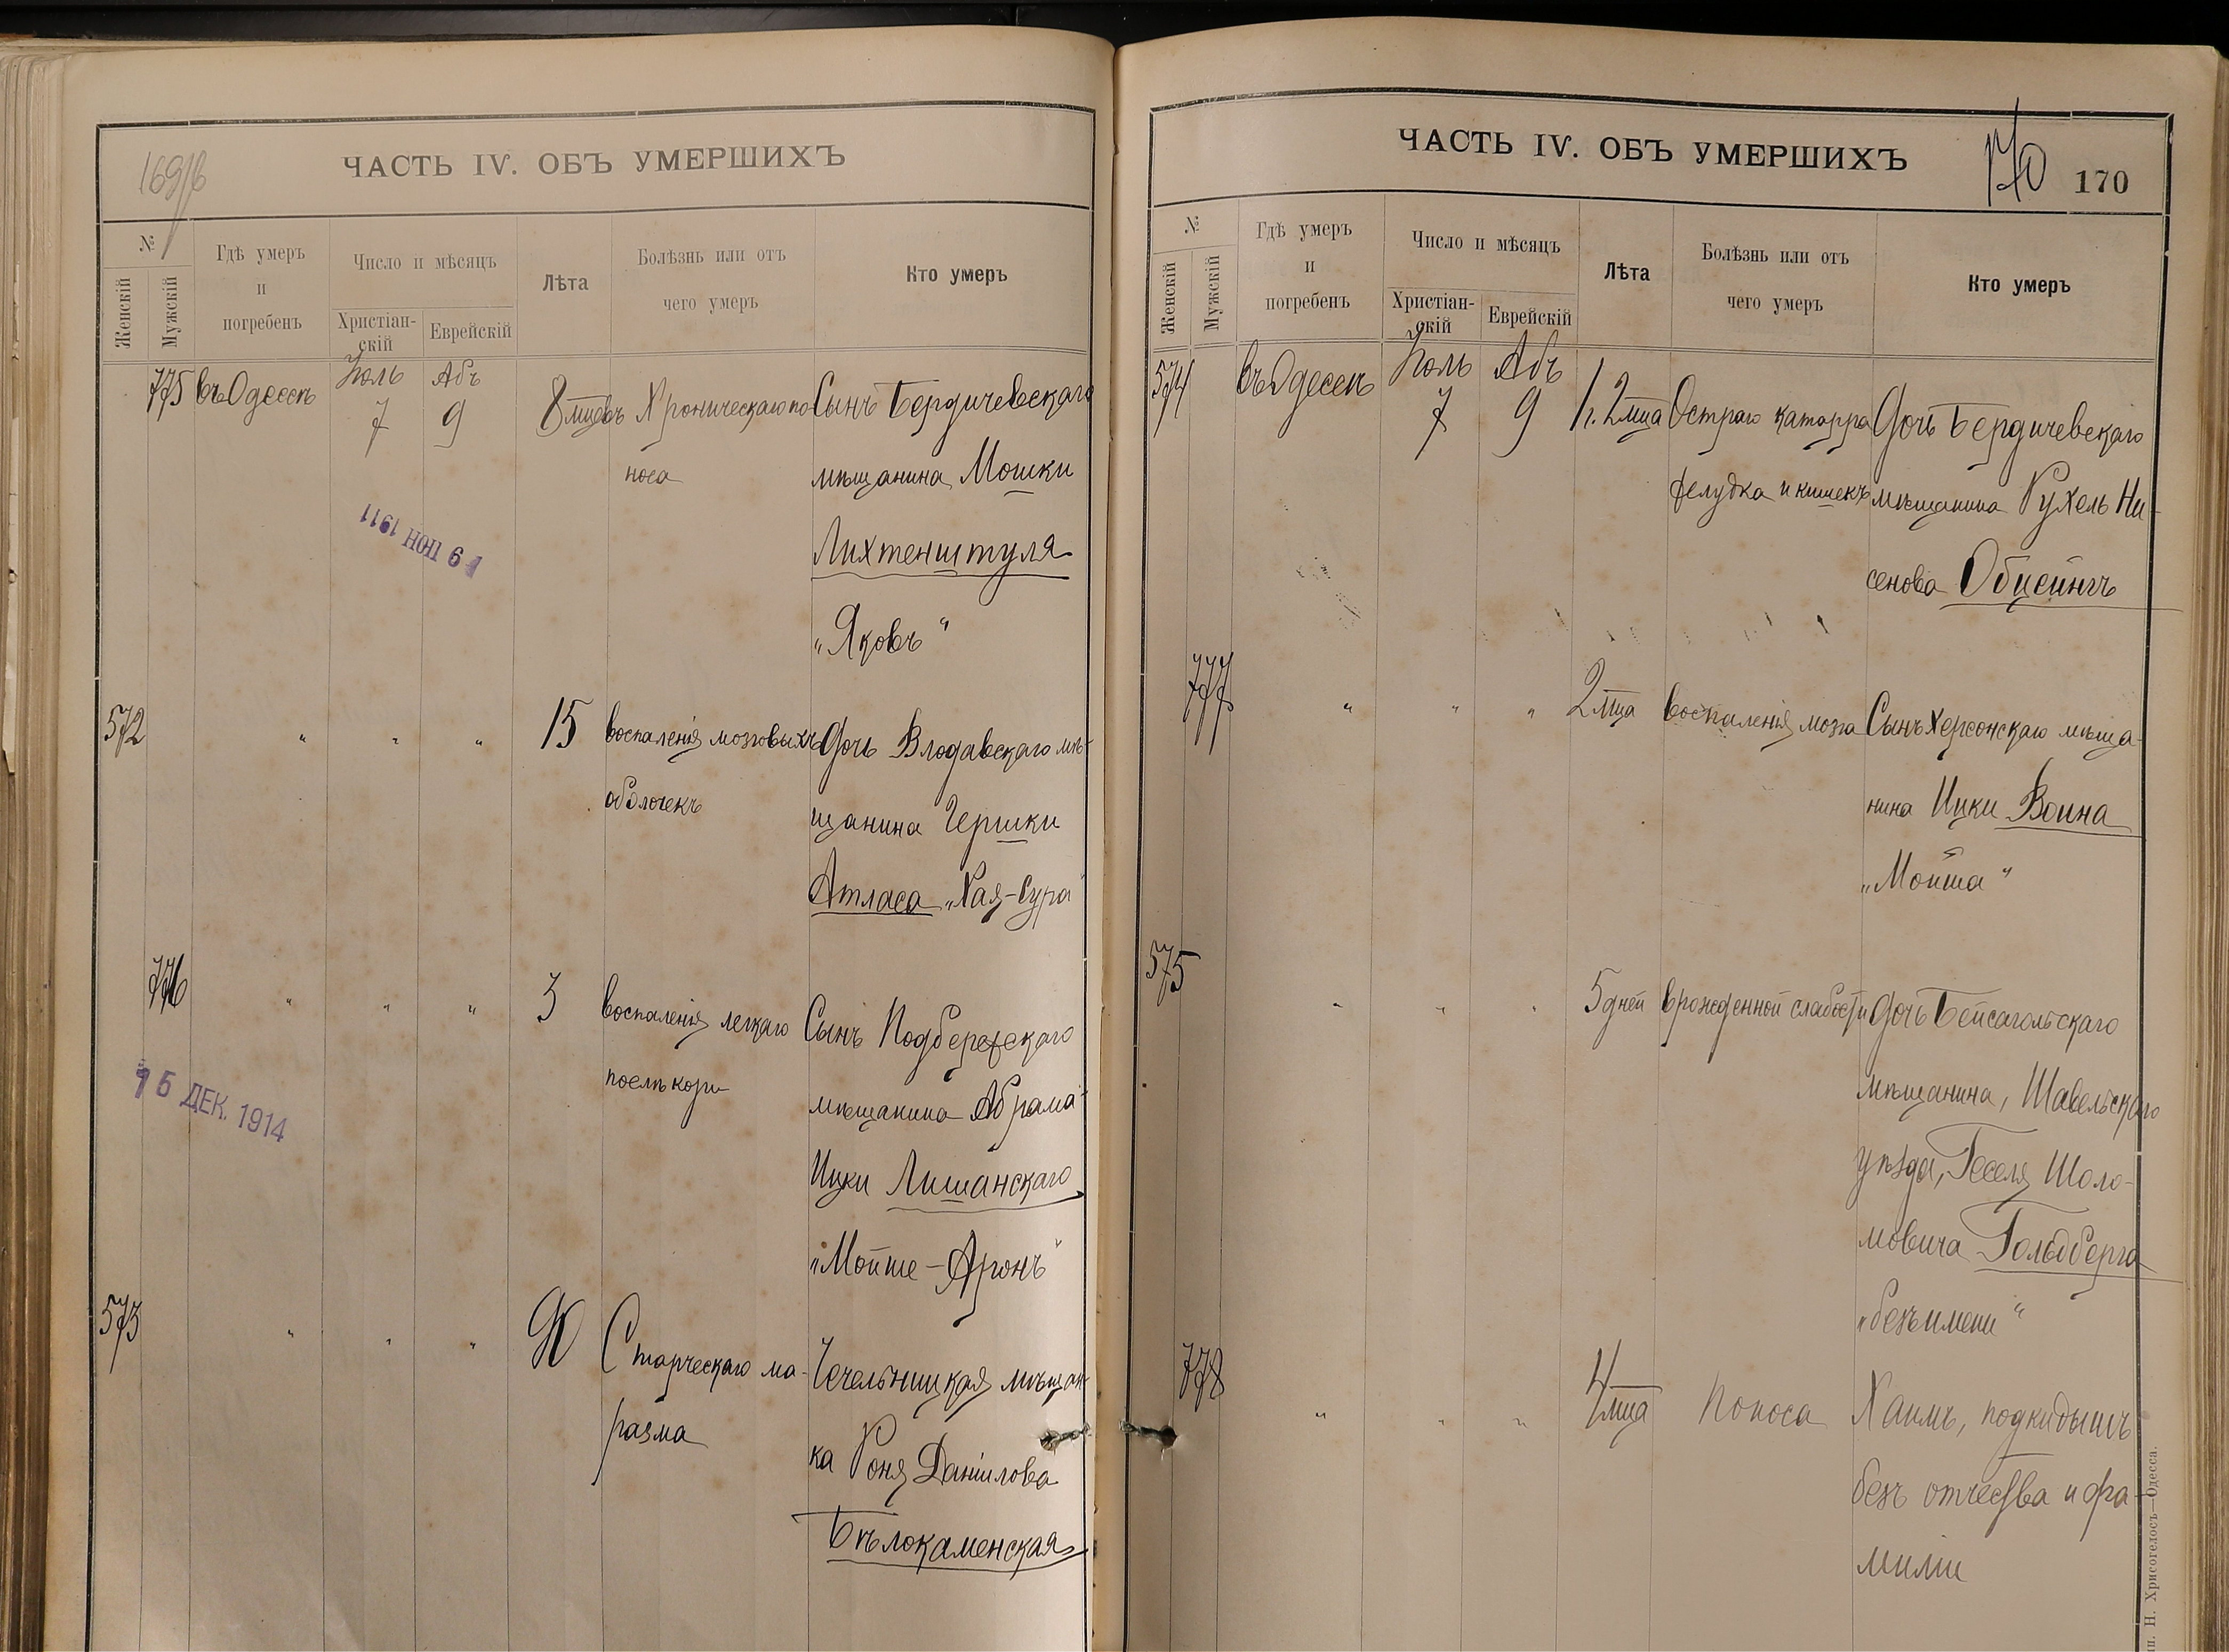 169/б
ЧАСТЬ IV. ОБЪ УМЕРШИХЪ
№
Женскій
Мужскій
Гдѣ умеръ
и
погребенъ
Число и мѣсяцъ
Христіан-
скій
Еврейскій
Лѣта
Болѣзнь или отъ
чего умеръ
Кто умеръ
775 въ Одессѣ Іюль 7 Абъ 9 8 мцевъ Хроническаго по- Сынъ Бердичевскаго
носа мѣщанина Мошки
Лихтенштуля
„Яковъ“
19 ІЮН 1911
572 " " " 15 воспаленія мозговыхъ Дочь Влодавскаго мѣ-
оболочекъ щанина Гершки
Атласа „Хая-Сура“
776 " " " 3 воспаленія легкаго Сынъ Подберезскаго
послѣ кори мѣщанина Абрама-
Ицки Лишанскаго
„Мойше-Аронъ“
15 ДЕК. 1914
573 " " " 90 Старческаго ма- Чечельницкая мѣщан-
разма ка Роня Даніилова
Бѣлокаменская
ЧАСТЬ IV. ОБЪ УМЕРШИХЪ
170
170
№
Женскій
Мужскій
Гдѣ умеръ
и
погребенъ
Число и мѣсяцъ
Христіан-
скій
Еврейскій
Лѣта
Болѣзнь или отъ
чего умеръ
Кто умеръ
574 въ Одессѣ Іюль 7 Абъ 9 1 г. 2 мца Остраго катарра Дочь Бердичевскаго
желудка и кишекъ мѣщанина Рухель Ни-
сенова Обцейнгъ
777 " " " 2 мца воспаленія мозга Сынъ Херсонскаго мѣща-
нина Ицки Воина
„Мойша“
575 " " " 5 дней врожденной слабости Дочь Бейсагольскаго
мѣщанина, Шавельскаго
уѣзда, Геселя Шоло-
мовича Гольдберга
„безъ имени“
778 " " " 4 мца Поноса Хаимъ, подкидышъ
безъ отчества и фа-
миліи
Н. Хрисогелосъ—Одесса.